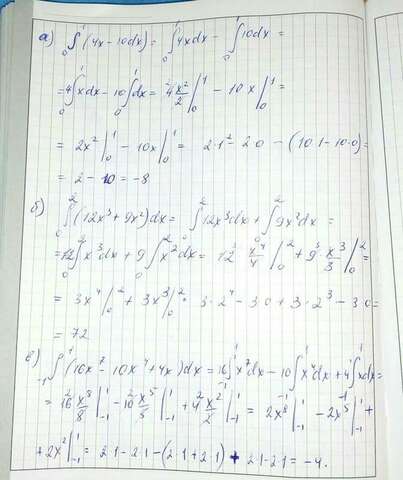 а) ₀∫¹(4x-10dx) = ₀∫¹4xdx - ₀∫¹10dx =
= 4₀∫¹xdx - 10₀∫¹dx = 4 x²/2 |₀¹ - 10x |₀¹ =
= 2x² |₀¹ - 10x |₀¹ = 2·1² - 2·0 - (10·1-10·0) =
= 2 - 10 = -8
б) ₀∫²(12x³ + 9x²)dx = ₀∫²12x³dx + ₀∫²9x²dx =
= 12₀∫²x³dx + 9₀∫²x²dx = 12 x⁴/4 |₀² + 9 x³/3 |₀² =
= 3x⁴ |₀² + 3x³ |₀² = 3·2⁴ - 3·0 + 3·2³ - 3·0 =
= 72
в) ₋₁∫¹(16x⁷ - 10x⁴ + 4x)dx = 16₋₁∫¹x⁷dx - 10₋₁∫¹x⁴dx + 4₋₁∫¹xdx =
= 16 x⁸/8 |₋₁¹ - 10 x⁵/5 |₋₁¹ + 4 x²/2 |₋₁¹ = 2x⁸ |₋₁¹ - 2x⁵ |₋₁¹ +
+ 2x² |₋₁¹ = 2·1 - 2·1 - (2·1 + 2·1) + 2·1 - 2·1 = -4.